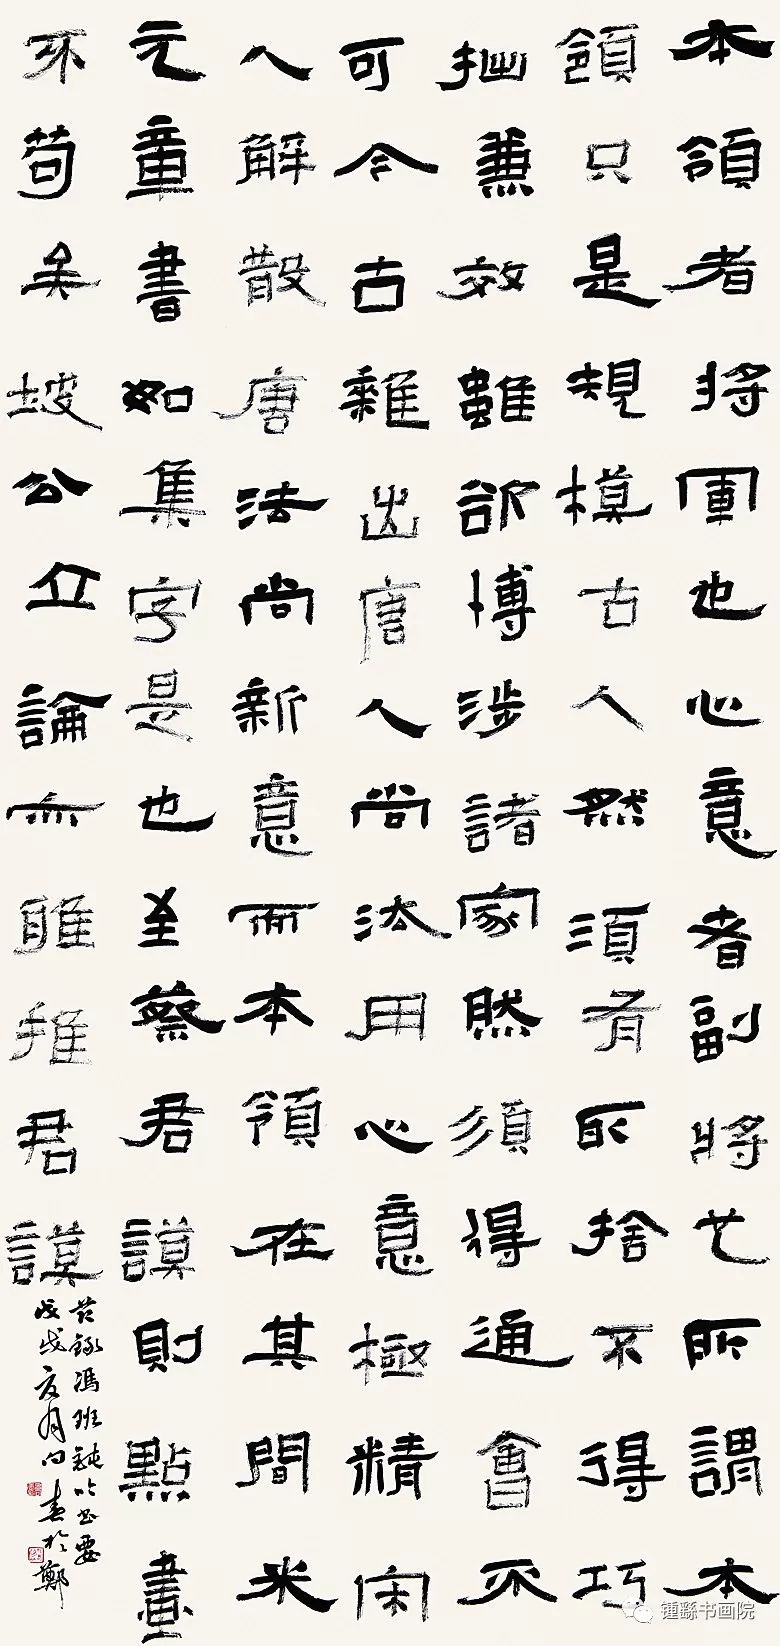 本領者將軍也心意者副將也所謂本
領只是規模古人然須有取捨不得巧
拙兼效雖欲博涉諸家然須得通會不
可今古雜出唐人尚法用心意極精宋
人解散唐法尚新意而本領在其間米
元章書如集字是也至蔡君謨則點畫
不苟矣坡公立論亦雅推君謨
節錄馮班鈍吟書要
戊戌夏月向春於鄭
鍾繇书画院